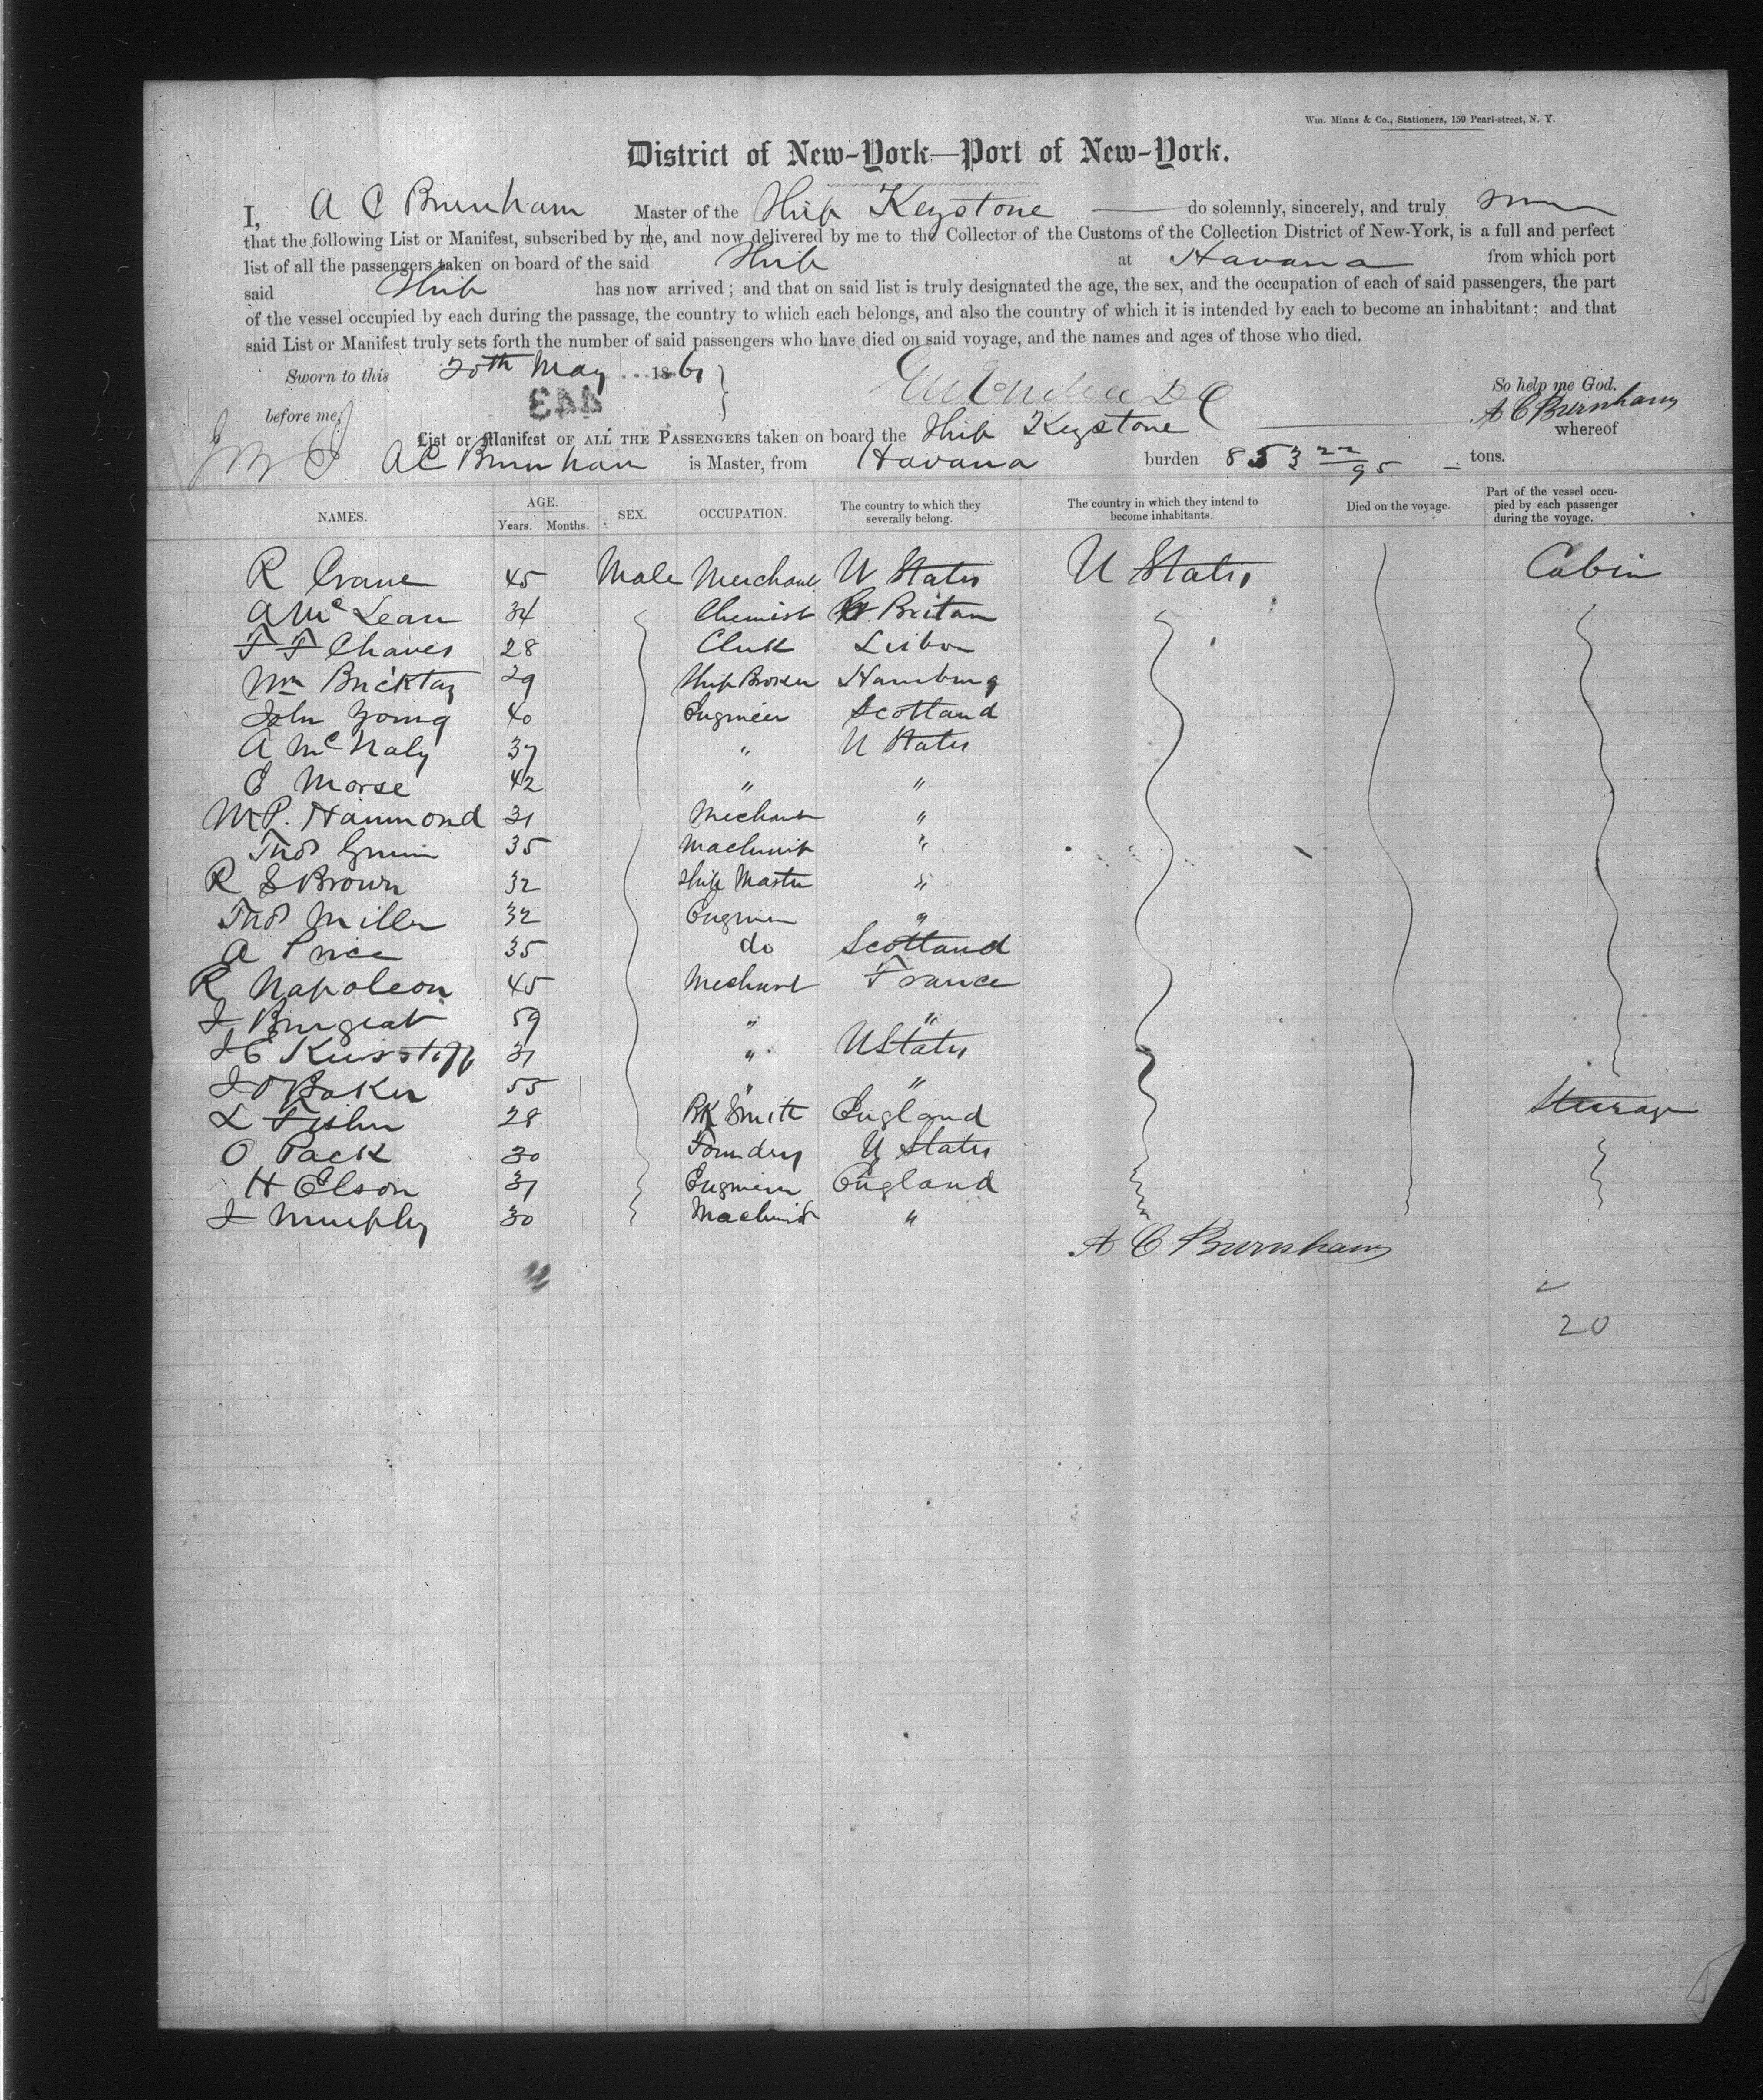 Wm. Minns & Co., Stationers, 159 Pearl-street, N. Y.
District of New-York—Port of New-York.
I, A C Burnham Master of the Ship Keystone do solemnly, sincerely, and truly
that the following List or Manifest, subscribed by me, and now delivered by me to the Collector of the Customs of the Collection District of New-York, is a full and perfect
list of all the passengers taken on board of the said Ship at Havana from which port
said Ship has now arrived; and that on said list is truly designated the age, the sex, and the occupation of each of said passengers, the part
of the vessel occupied by each during the passage, the country to which each belongs, and also the country of which it is intended by each to become an inhabitant; and that
said List or Manifest truly sets forth the number of said passengers who have died on said voyage, and the names and ages of those who died.
Sworn to this 20th May 1861
So help me God.
443
before me
A C Burnham
List or Manifest OF ALL THE PASSENGERS taken on board the Ship Keystone whereof
A C Burnham is Master, from Havana burden 853 22/95 tons.
NAMES. AGE. Years. Months. SEX. OCCUPATION. The country to which they severally belong. The country in which they intend to become inhabitants. Died on the voyage. Part of the vessel occupied by each passenger during the voyage.
R Crane 45 Male Merchant U States U States Cabin
A McLean 34 Chemist Gt. Britan
F F Chaves 28 Clerk Lisbon
Wm 29 Ship Broker Hamburg
John Young 40 Engineer Scotland
A McNaly 37 " U States
E Morse 42 " "
M P. Hammond 31 Mechant "
Thos 35 Machinist "
R S Brown 32 Ship Master "
Thos Miller 32 Engineer "
A Price 35 do Scotland
R Napoleon 45 Mechant France
59 " "
31 " U States
J O Baker 55 " "
L Fisher 28 Bk Smith England Steerage
O Pack 30 Foundry U States
H Elson 31 Engineer England
J Murphy 30 Machinist "
A C Burnham
20